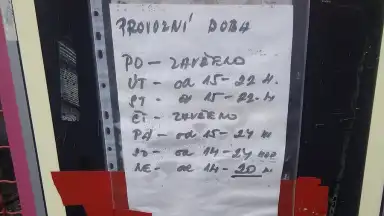 PROVOZNÍ DOBA
PO - ZAVŘENO
ÚT - od 15 - 22 h.
ST - od 15 - 22 h
ČT - ZAVŘENO
PÁ - od 15 - 24 h
SO - od 14 - 24
NE - od 14 - 20 h